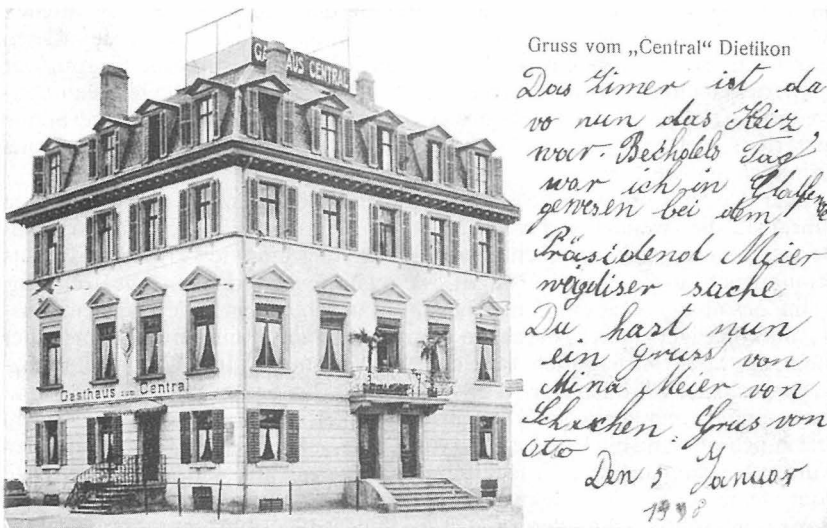 GASTHAUS CENTRAL
Gasthaus zum Central
Gruss vom „Central“ Dietikon
Das Zimer ist da
wo nun das Kriz
war. Bechdels Tag
war ich in
gewesen bei dem
Präsidenol Meier
sache
Du hast nun
ein gruss von
Mina Meier von
Schachen. Grus von
Otto
Den 5 Januar